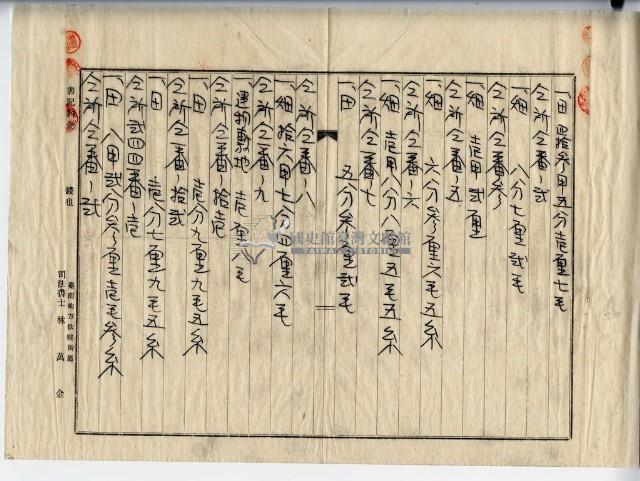 一、田 四拾参甲五分壱厘七毛
仝所仝番ノ弐
一、畑 八分七厘弐毛
仝所仝番ノ参
一、畑 壱甲弐厘
仝所仝番ノ五
一、畑 六分参厘六毛五糸
仝所仝番ノ六
一、畑 壱甲八分八厘五毛八糸
仝所仝番ノ七
一、田 五分参厘弐毛
仝所仝番ノ八
一、畑 拾六甲七分四厘六毛
仝所仝番ノ九
一、建物敷地 壱厘八毛
仝所仝番ノ拾壱
一、田 壱分九厘九毛五糸
仝所仝番ノ拾弐
一、田 壱分七厘九毛五糸
仝所弐四四番ノ壱
一、田 八甲弐分参厘壱毛参糸
仝所仝番ノ弐
書記料金 錢也
臺南地方法院所屬
司法書士 林萬金
國史館臺灣文獻館
TAIWAN HISTORICA